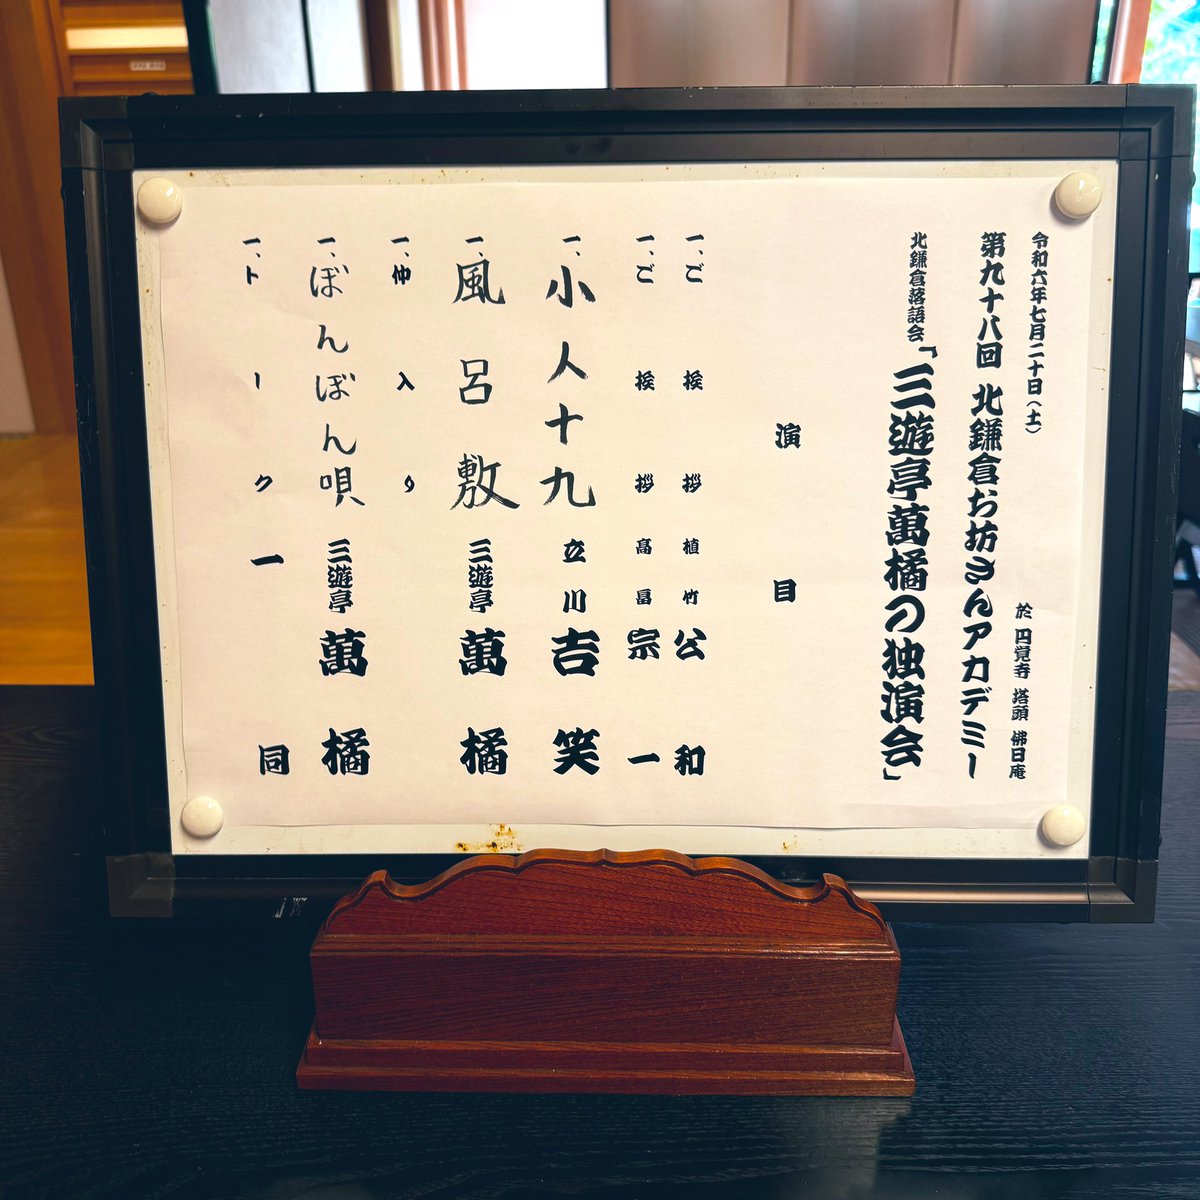 令和六年七月二十日（土）
於 円覚寺 塔頭 佛日庵
第九十八回 北鎌倉お坊さんアカデミー
北鎌倉落語会「三遊亭萬橘の独演会」
演目
一、ご挨拶 植竹 公和
一、ご挨拶 高冨 宗一
一、小人十九 立川 吉笑
一、風呂敷 三遊亭 萬橘
一、仲入り
一、ぼんぼん唄 三遊亭 萬橘
一、トーク 一同